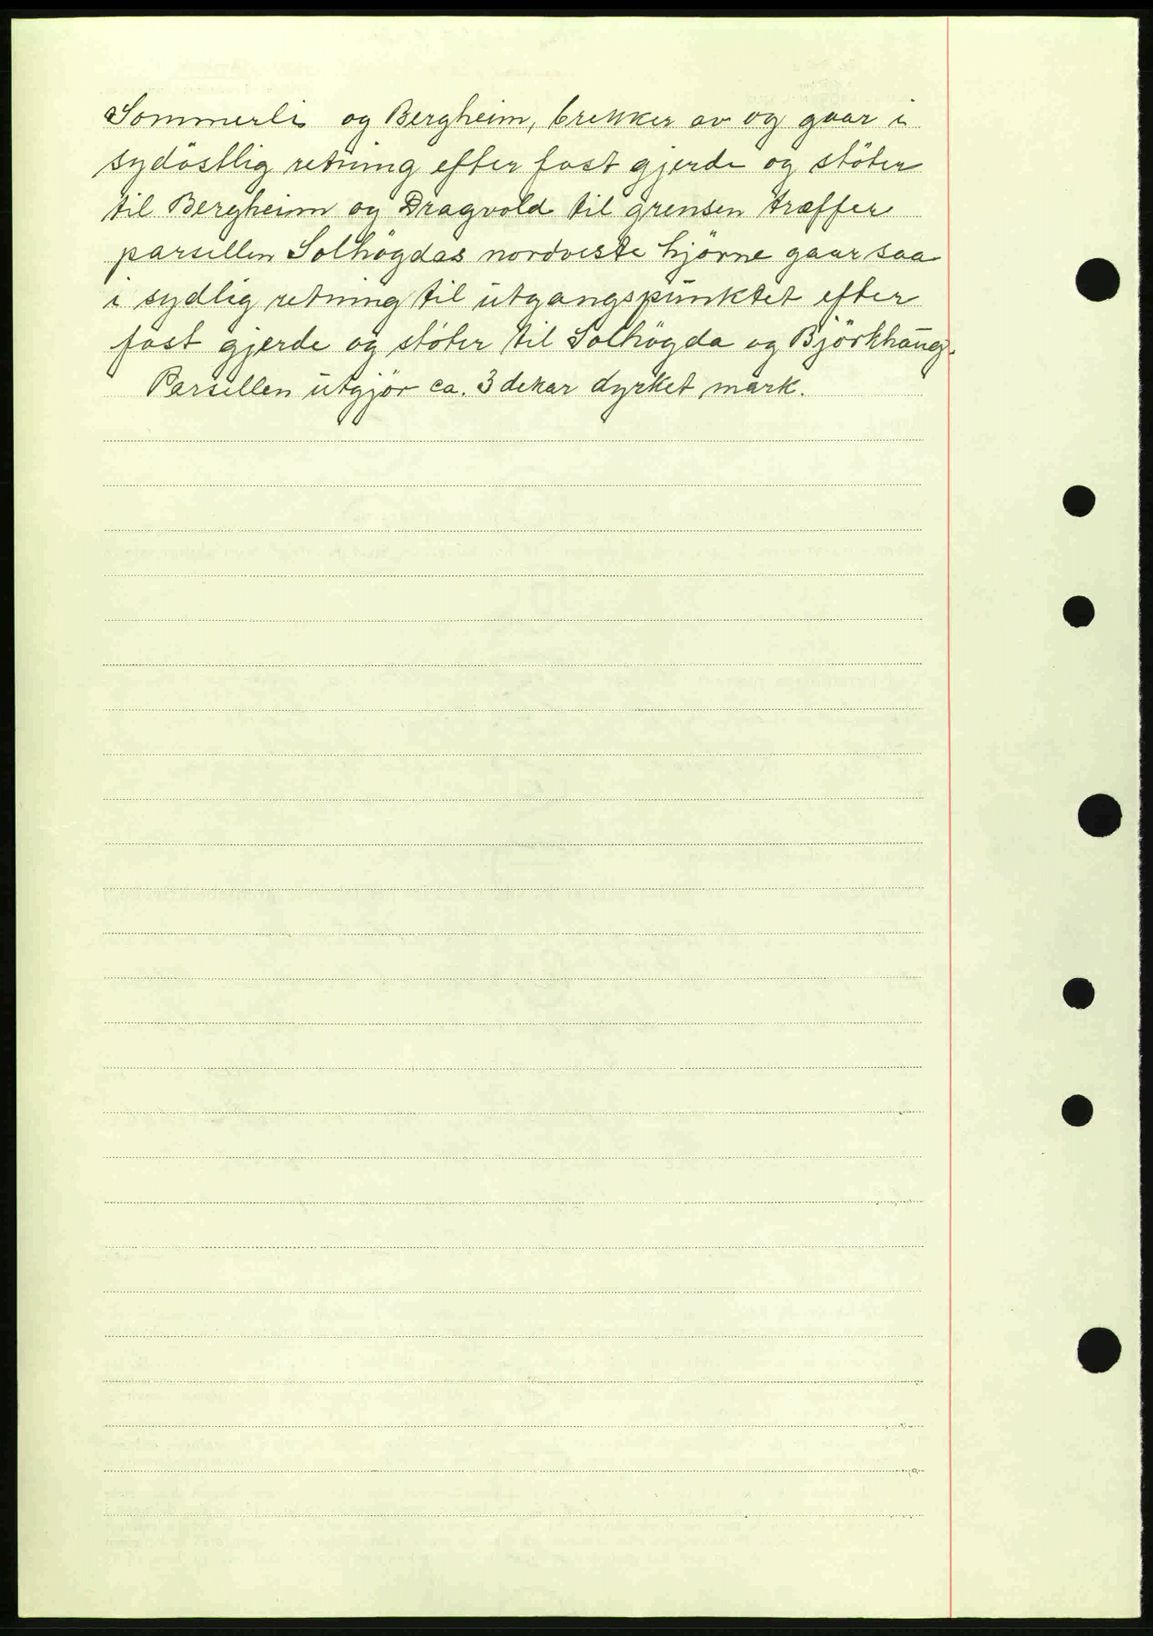 Sommerli og Bergheim, brekker av og gaar i
sydöstlig retning efter fast gjerde og stöter
til Bergheim og Dragvold til grensen træffer
parsellen Solhögdas nordveste hjörne gaar saa
i sydlig retning til utgangspunktet efter
fast gjerde og stöter til Solhögda og Björkhaug.
Parsellen utgjör ca. 3 dekar dyrket mark.